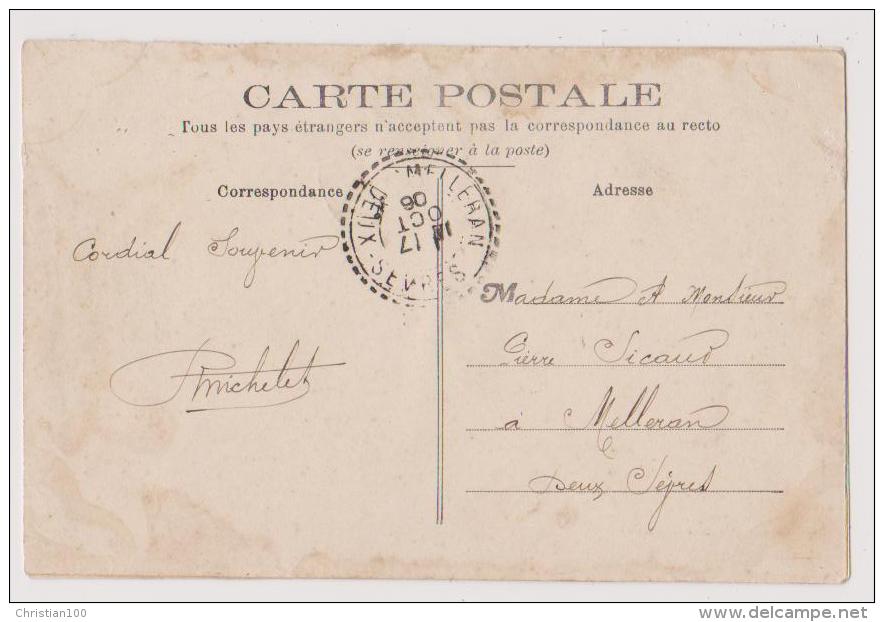 CARTE POSTALE
Tous les pays étrangers n'acceptent pas la correspondance au recto
(se renseigner à la poste)
Correspondance
Adresse
MELLERAN
DEUX-SEVRES
17
OCT
06
Cordial Souvenir
Pmichelet
Madame & Monsieur
Pierre Sicaud
à Melleran
Deux Sèvres
Christian100
delcampe.net